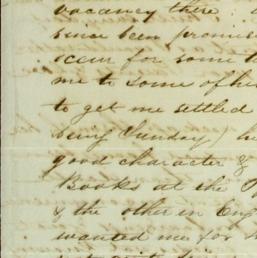 vacancy there
since been promise
soeur for some t
me to some of his
to get me settled
being Sunday) he
good character &
Books at the
& the other in Eng
wanted me for